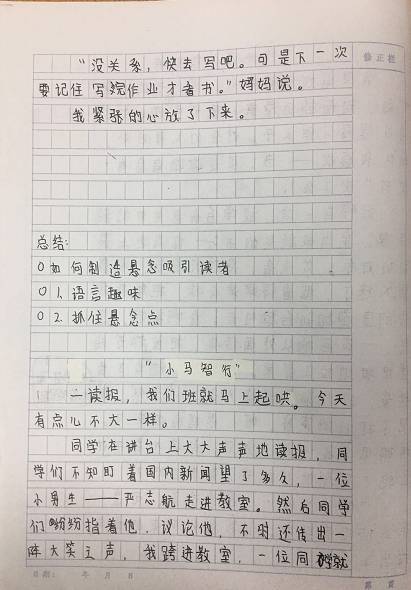 “没关系，快去写吧。可是下一次
要记住写完作业才看书。”妈妈说。
我紧张的心放了下来。
修正栏
总结：
0如何制造悬念吸引读者
0 1.语言趣味
0 2.抓住悬念点
“小马智行”
一读报，我们班就马上起哄。今天
有点儿不大一样。
同学在讲台上大大声声地读报，同
学们不知盯着国内新闻望了多久，一位
小男生——严志航走进教室。然后同学
们纷纷指着他，议论他，不时还传出一
阵大笑之声，我跨进教室，一位同学就
日期： 年 月 日
第 页